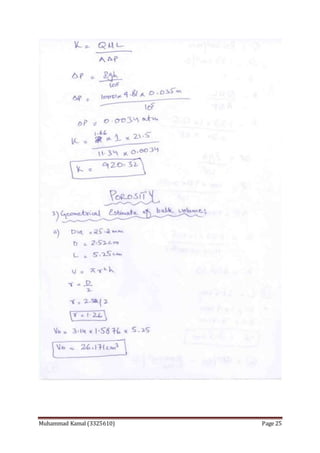 K = QML
AΔP
ΔP = ρgh
10⁵
ΔP = 1000 x 9.81 x 0.035m
10⁵
ΔP = 0.0034 atm
1.86
K = x 1 x 21.5
11.34 x 0.0034
K = 920.32
POROSITY
3) Geometrical Estimate of bulk volume:
a) Dia = 25.2mm
D = 2.52cm
L = 5.25cm
V = πr²h
r = D
2
r = 2.52/2
r = 1.26
Vb = 3.14 x 1.5876 x 5.25
Vb = 26.171cm³
Muhammad Kamal (3325610) Page 25